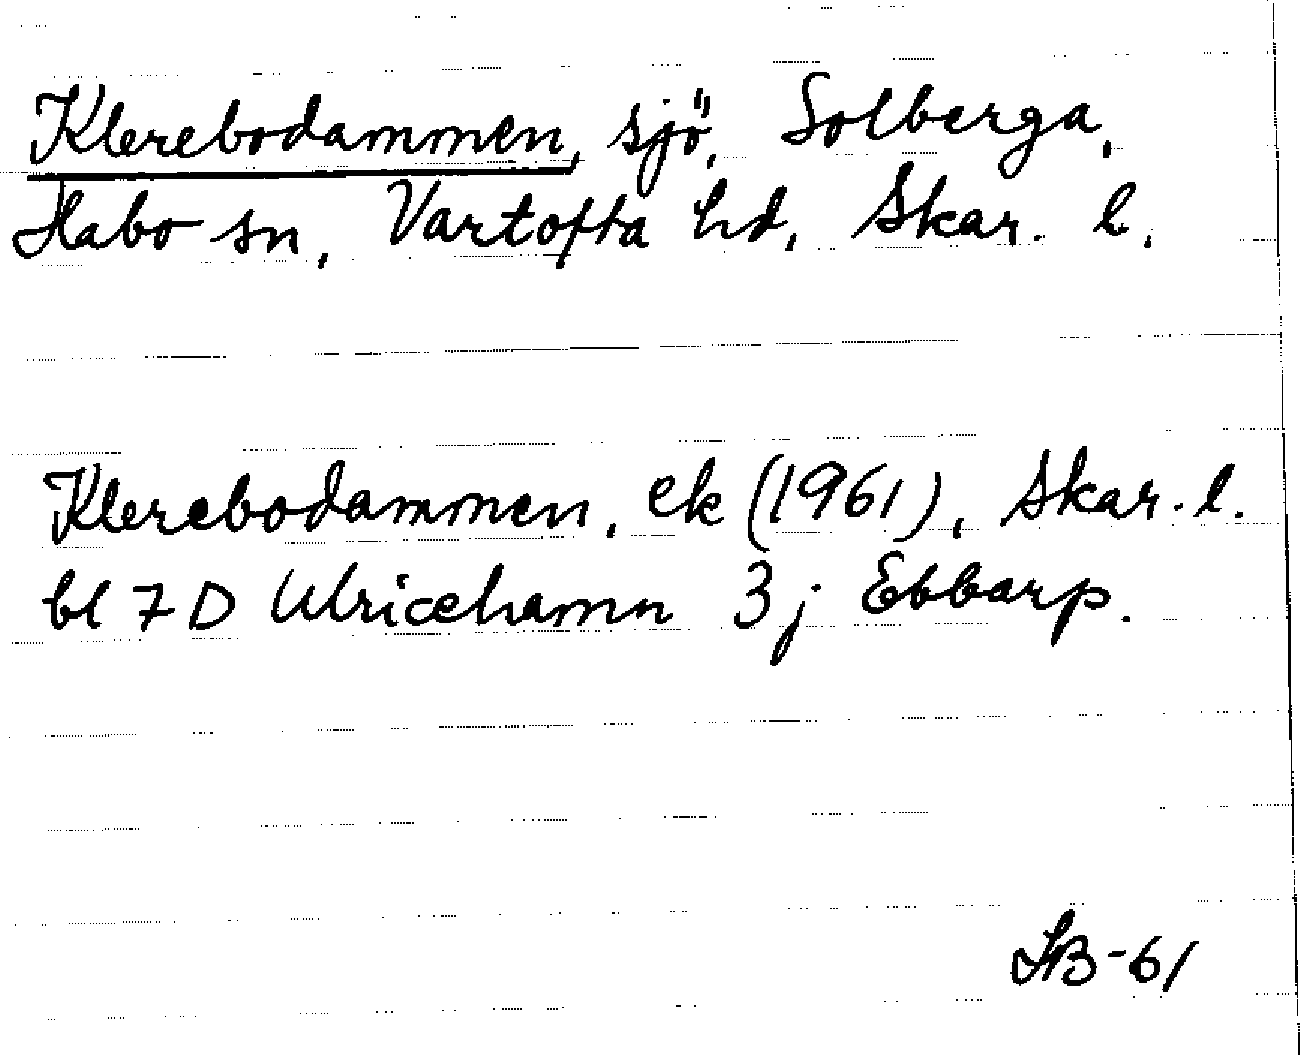 Klerebodammen, sjö, Solberga,
Habo sn, Vartofta hd, Skar. l.
Klerebodammen, ek (1961), Skar. l.
bl 7 D Ulricehamn 3 j Ebbarp.
SB-61